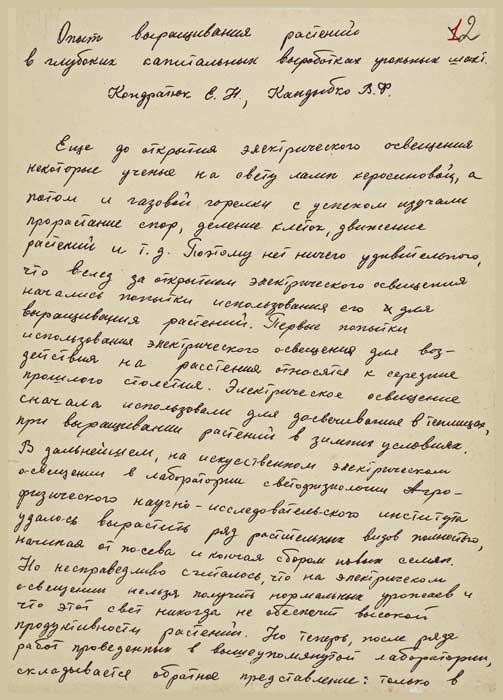 12
Опыт выращивания растений
в глубоких капитальных выработках угольных шахт.
Кондратюк Е. Н., Кандыбко В. Ф.
Еще до открытия электрического освещения
некоторые ученые на свету ламп керосиновой, а
потом и газовой горелки с успехом изучали
прорастание спор, деление клеток, движение
растений и т. д. Поэтому нет ничего удивительного,
что вслед за открытием электрического освещения
начались попытки использования его для
выращивания растений. Первые попытки
использования электрического освещения для воз-
действия на расстения относятся к середине
прошлого столетия. Электрическое освещение
сначала использовали для досвечивания в теплицах,
при выращивании растений в зимних условиях.
В дальнейшем, на искусственном электрическом
освещении в лаборатории светофизиологии Агро-
физического научно-исследовательского института
удалось вырастить ряд растительных видов полностью,
начиная от посева и кончая сбором новых семян.
Но несправедливо считалось, что на электрическом
освещении нельзя получить нормальных урожаев и
что этот свет никогда не обеспечит высокой
продуктивности растений. Но теперь, после ряда
работ проведенных в вышеупомянутой лаборатории,
складывается обратное представление: только в